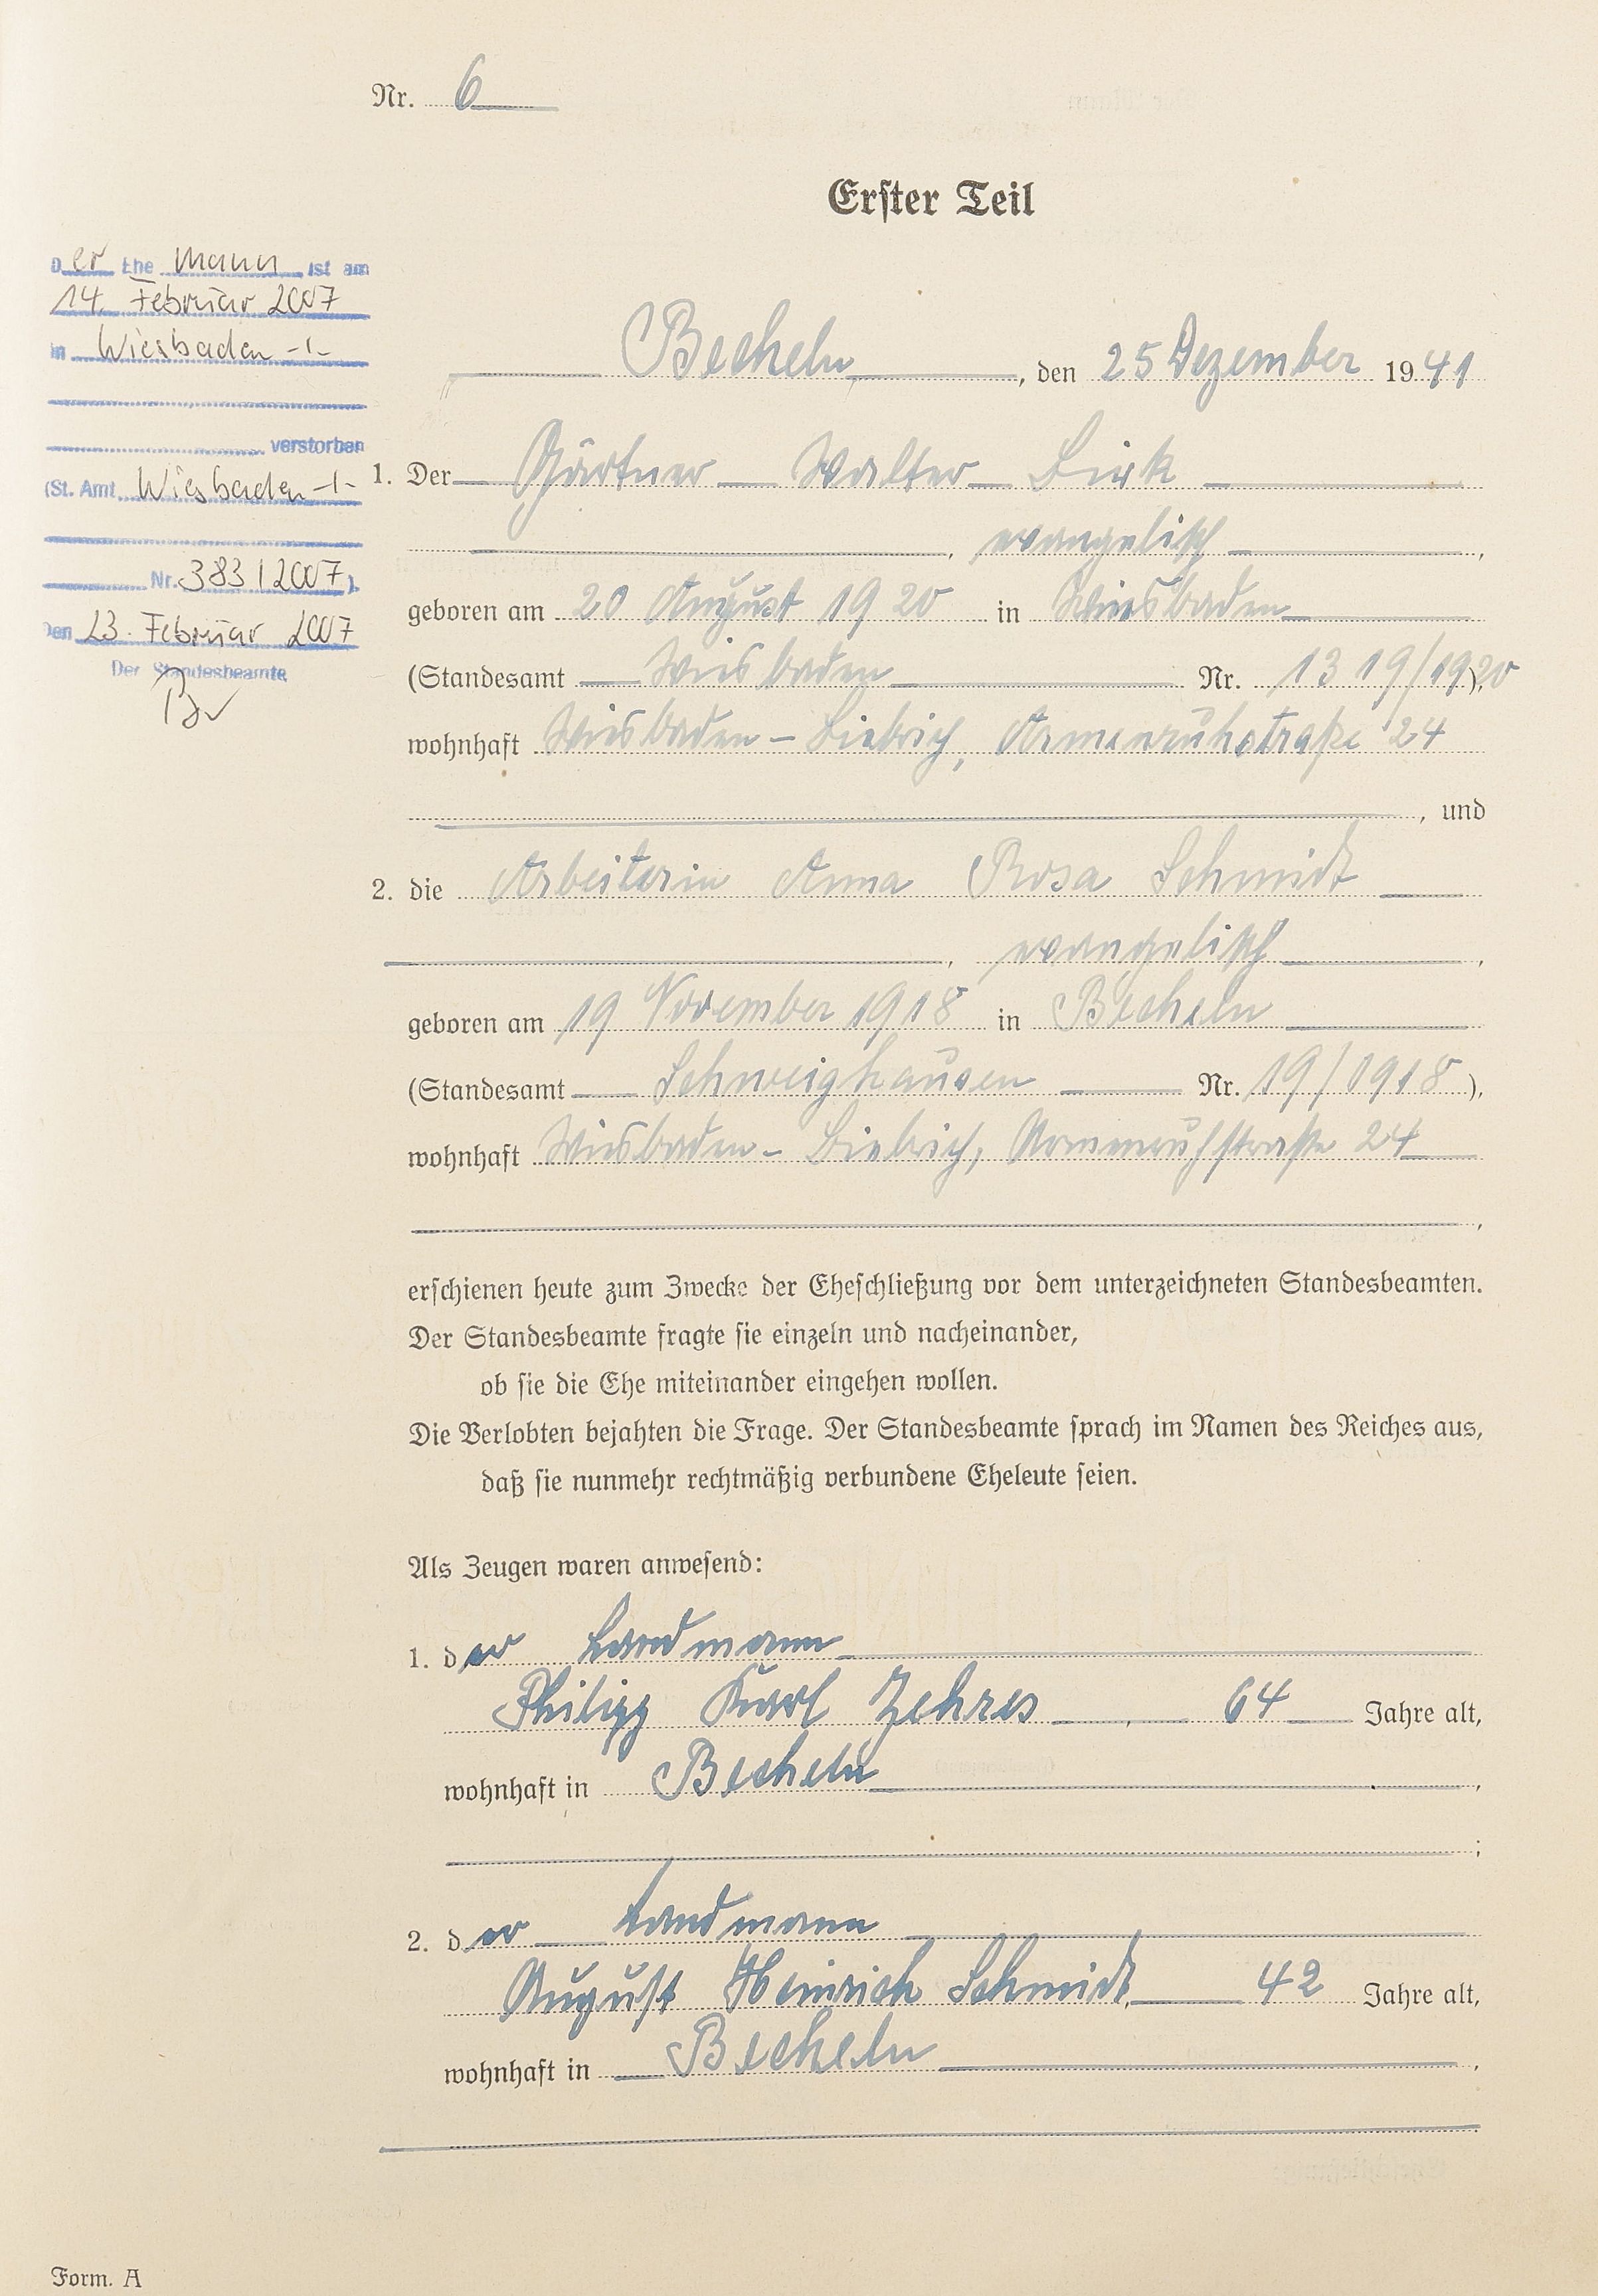 Nr. 6
Erster Teil
Der Ehe Mann ist am
14. Februar 2007
in Wiesbaden -1-
verstorben
(St. Amt Wiesbaden -1-
Nr. 383/2007).
Den 23. Februar 2007
Der Standesbeamte
Becheln, den 25 Dezember 1941
1. Der Gärtner Walter Birk
, evangelisch,
geboren am 20 August 1920 in Wiesbaden
(Standesamt Wiesbaden Nr. 1319/1920),
wohnhaft Wiesbaden-Biebrich, Armenruhstraße 24
, und
2. die Arbeiterin Anna Rosa Schmidt
, evangelisch,
geboren am 19 November 1918 in Becheln
(Standesamt Schweighausen Nr. 19/1918),
wohnhaft Wiesbaden-Biebrich, Armenruhstraße 24
,
erschienen heute zum Zwecke der Eheschließung vor dem unterzeichneten Standesbeamten.
Der Standesbeamte fragte sie einzeln und nacheinander,
ob sie die Ehe miteinander eingehen wollen.
Die Verlobten bejahten die Frage. Der Standesbeamte sprach im Namen des Reiches aus,
daß sie nunmehr rechtmäßig verbundene Eheleute seien.
Als Zeugen waren anwesend:
1. der Landmann
Philipp Karl Zehres, 64 Jahre alt,
wohnhaft in Becheln,
;
2. der Landmann
August Heinrich Schmidt, 42 Jahre alt,
wohnhaft in Becheln,
Form. A